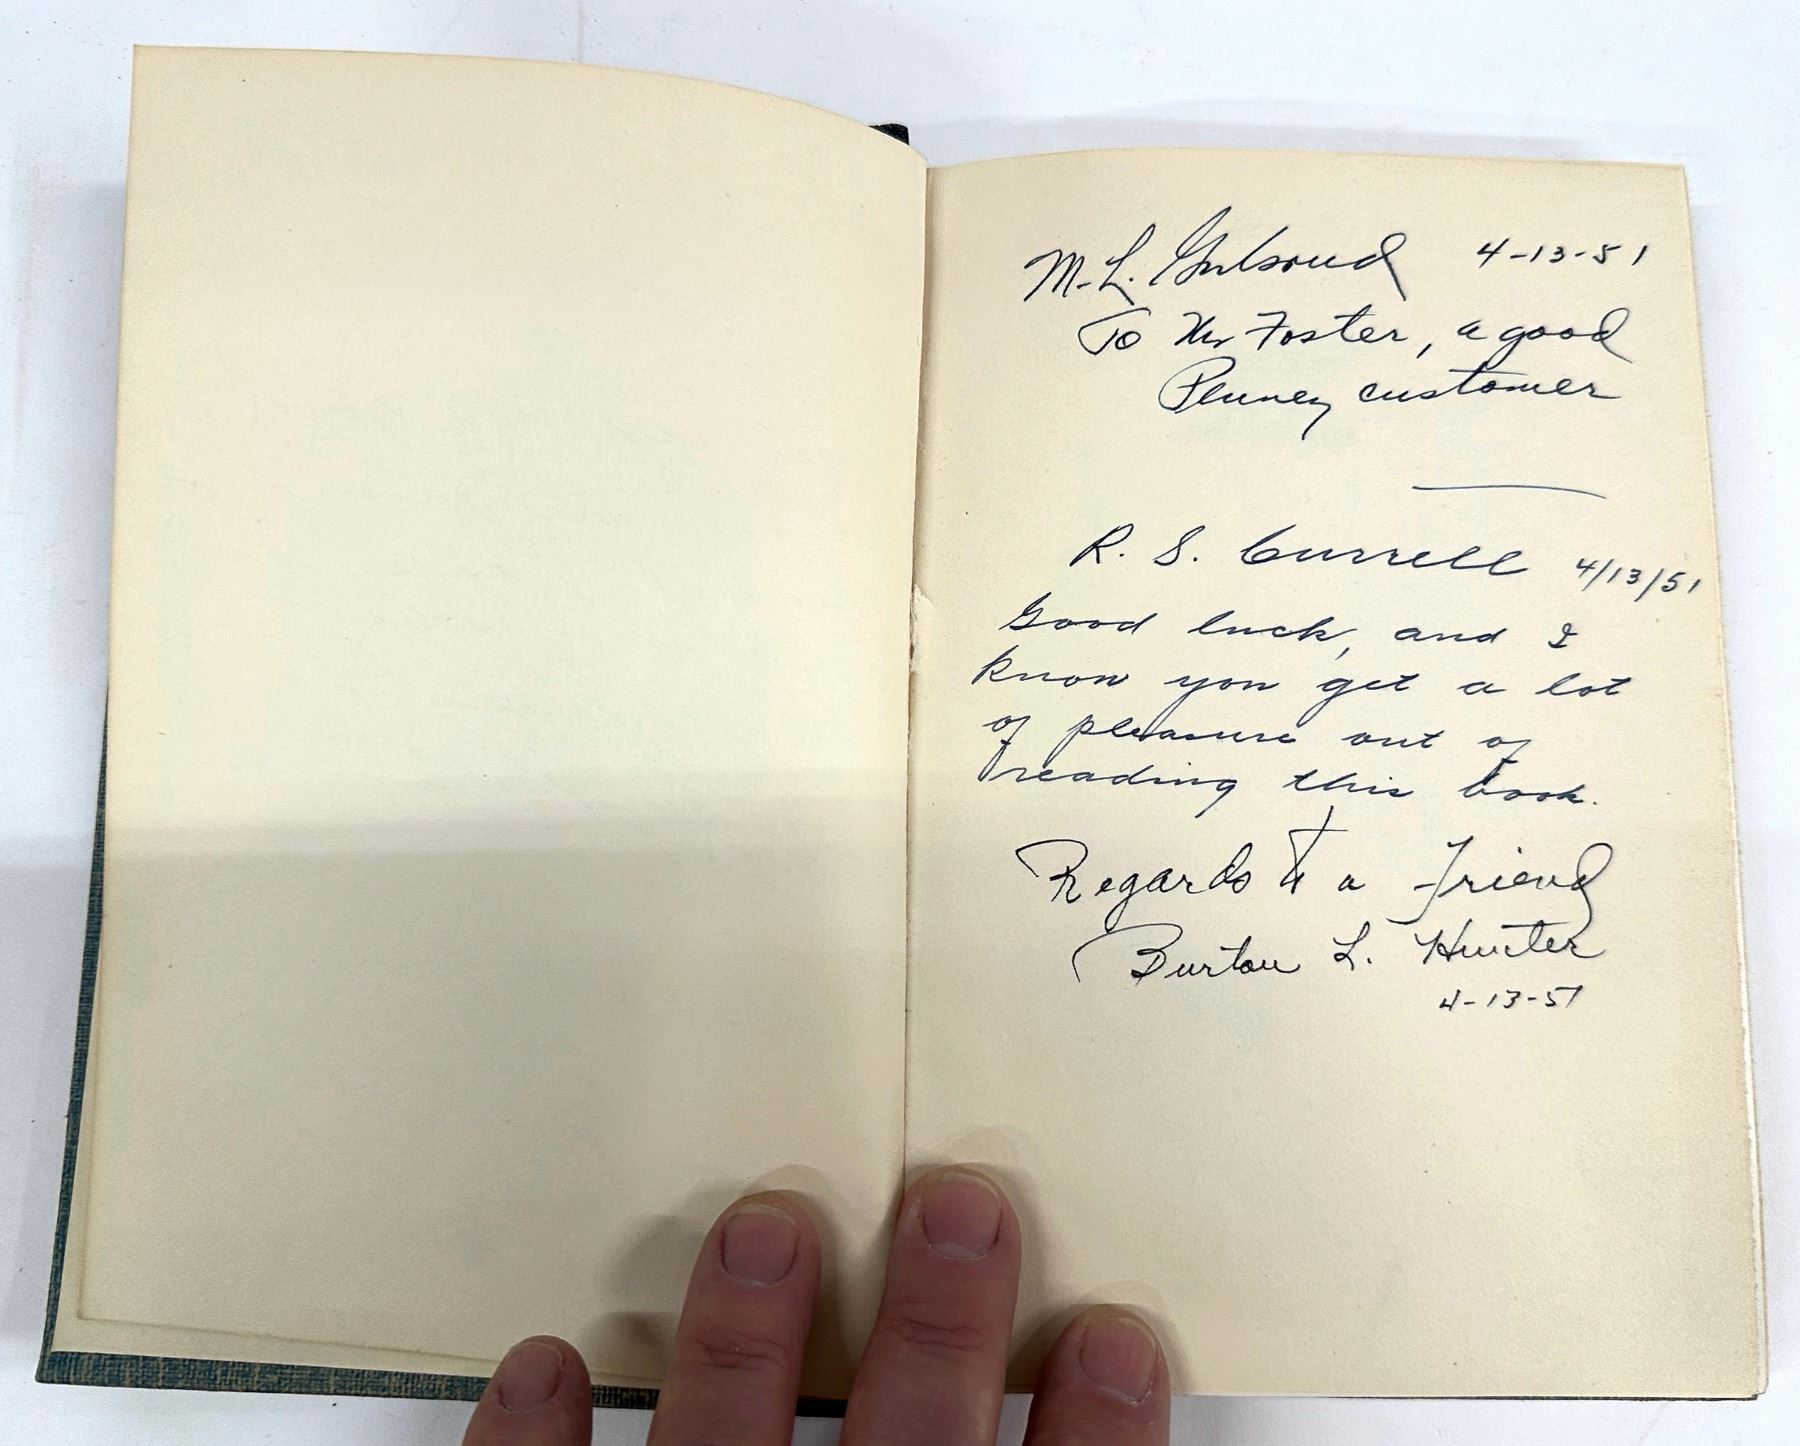 M. L. 4-13-51
To Mr Foster, a good
Penney customer
R. S. Currell 4/13/51
Good luck, and I
know you get a lot
of pleasure out of
reading this book.
Regards to a Friend
Burton L. Hunter
4-13-51